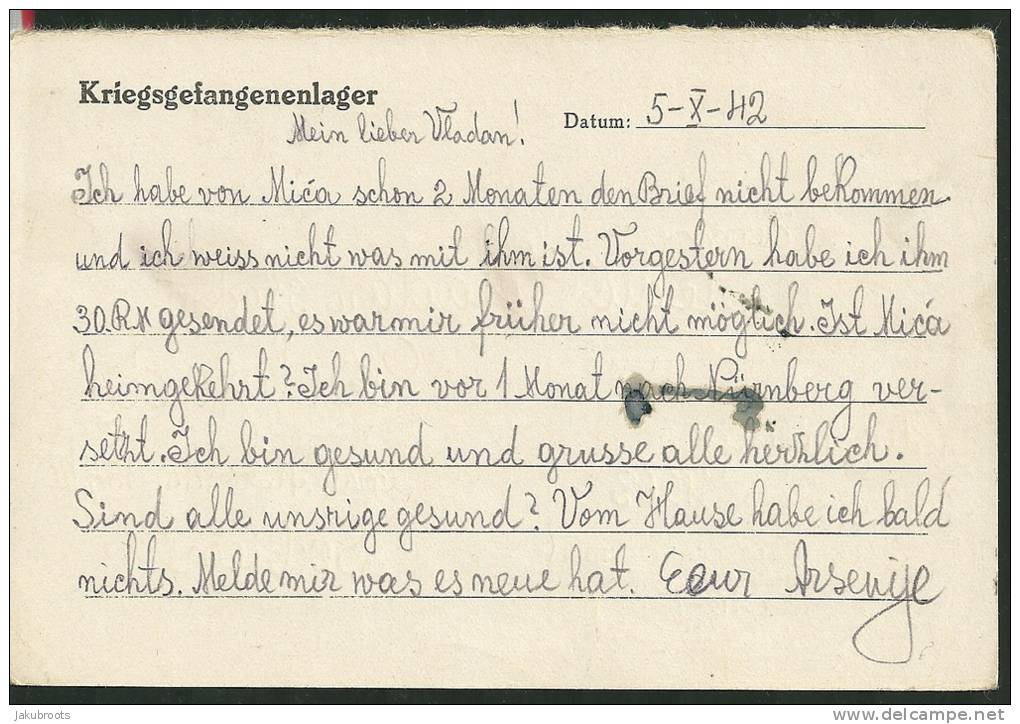 Kriegsgefangenenlager
Datum: 5-X-42
Mein lieber Vladan!
Ich habe von Mića schon 2 Monaten den Brief nicht bekommen
und ich weiss nicht was mit ihm ist. Vorgestern habe ich ihm
30.RM gesendet, es war mir früher nicht möglich. Ist Mića
heimgekehrt? Ich bin vor 1 Monat nach Nürnberg ver-
setzt. Ich bin gesund und grusse alle herzlich.
Sind alle unsrige gesund? Vom Hause habe ich bald
nichts. Melde mir was es neue hat. Eeur Arsenije
jakubroots
delcampe.net